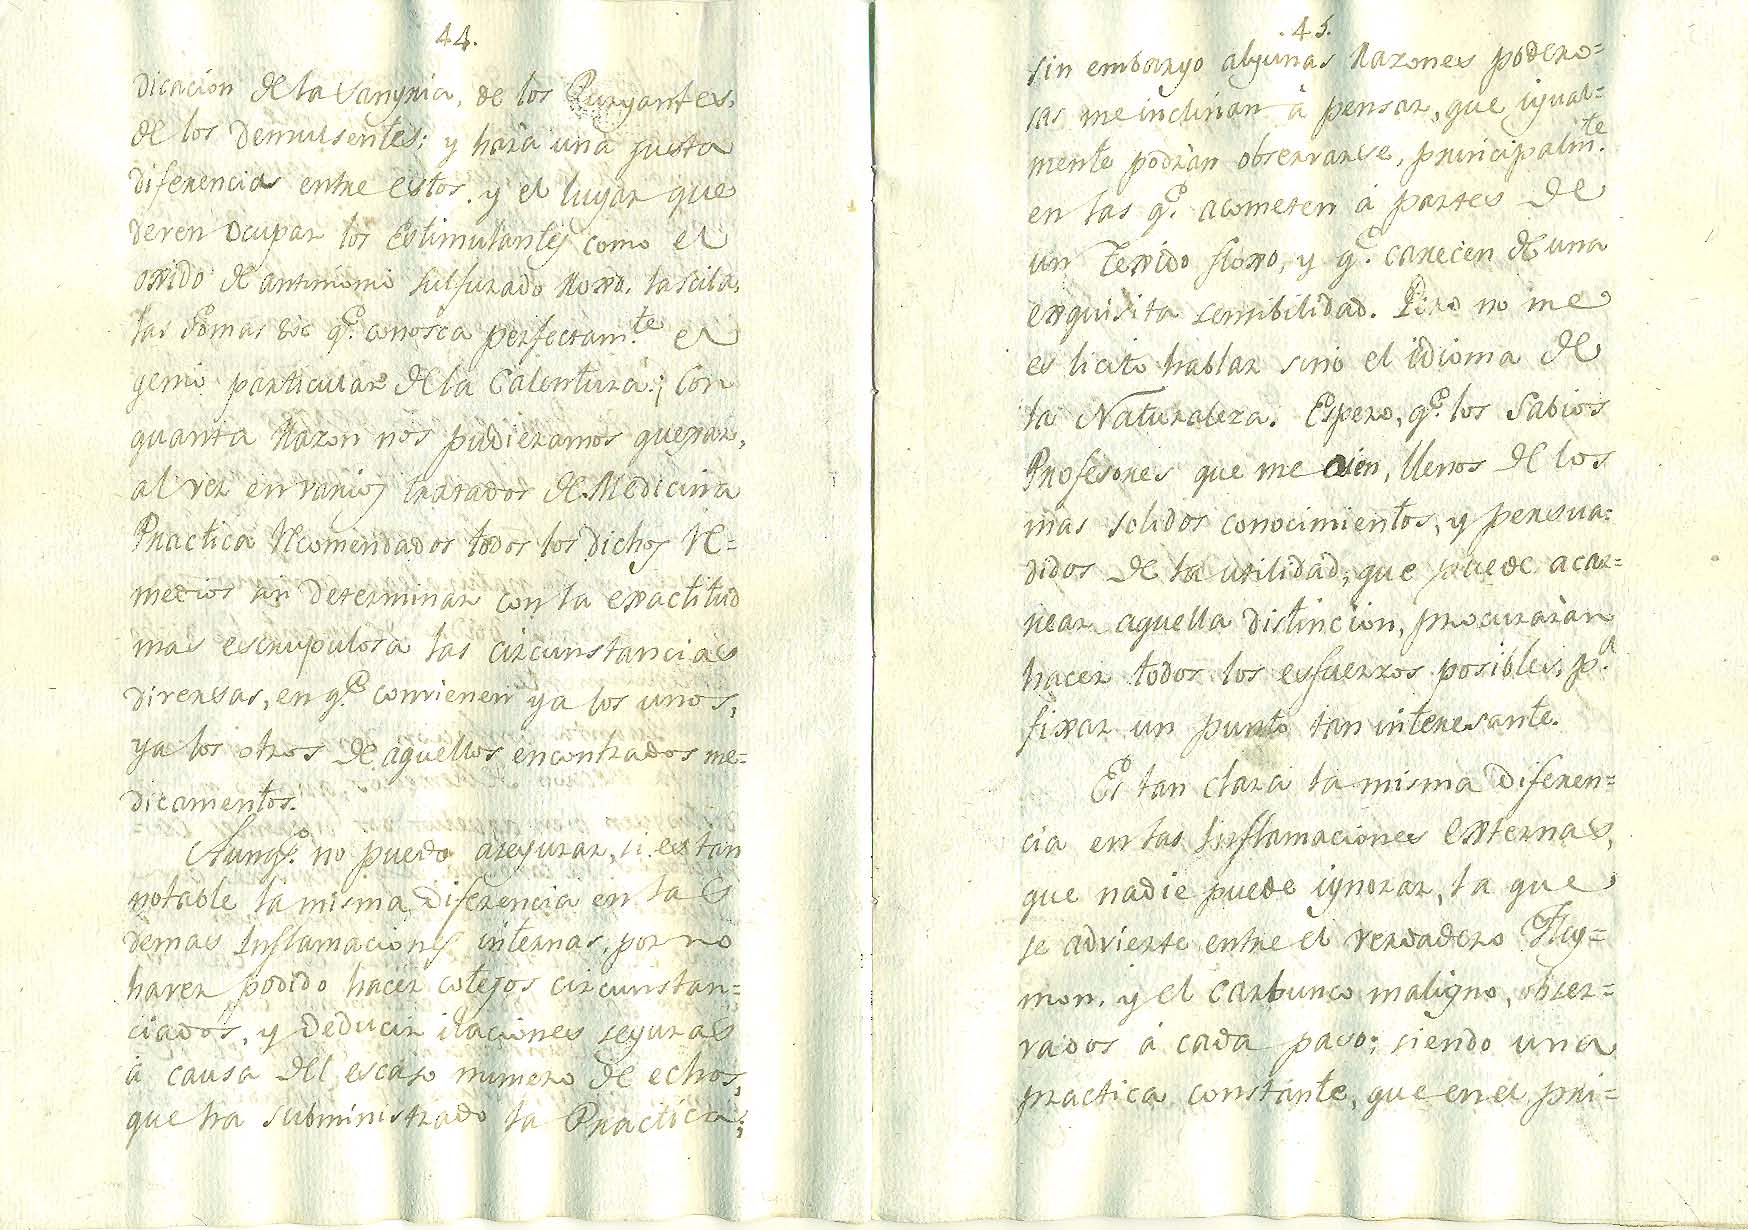 44.
dicacion de la Sangria, de los Purgantes,
de los Demulsentes; y hará una justa
diferencia entre estos, y el lugar que
deven ocupar los Estimulantes como el
oxido de antimonio sulfurado Roxo, la scila,
las Gomas &c q.e conosca perfectam.te el
genio particular de la Calentura.¡ Con
quanta Razon nos pudieramos quexar,
al ver en varios tratados de Medicina
Practica Recomendados todos los dichos Re=
medios sin determinar con la exactitud
mas escrupulosa las circunstancias
diversas, en q.e convienen ya los unos,
ya los otros de aquellos encontrados me=
dicamentos.
Aunq.e no puedo asegurar, si es tan
notable la misma diferencia en las
demas Inflamaciones internas, por no
haver podido hacer cotejos circunstan=
ciados, y deducir ilaciones seguras
à causa del escaso numero de echos,
que ha subministrado la Practica;
.45.
sin embargo algunas Razones podero=
sas me inclinan à pensar, que igual=
mente podràn observarse, principalm.te
en las q.e acometen à partes de
un Texido floxo, y q.e carecen de una
exquisita sensibilidad. Pero no me
es licito hablar sino el idioma de
la Naturaleza. Espero, q.e los Sabios
Profesores que me oien, llenos de los
mas solidos conocimientos, y persua=
didos de la utilidad, que puede acar=
rear aquella distincion, procuraràn
hacer todos los esfuerzos posibles, p.a
fixar un punto tan interesante.
Es tan clara la misma diferen=
cia en las Inflamaciones externas,
que nadie puede ignorar, la que
se advierte entre el verdadero Fleg=
mon, y el carbunco maligno, obser=
vados à cada paso; siendo una
practica constante, que en el pri=